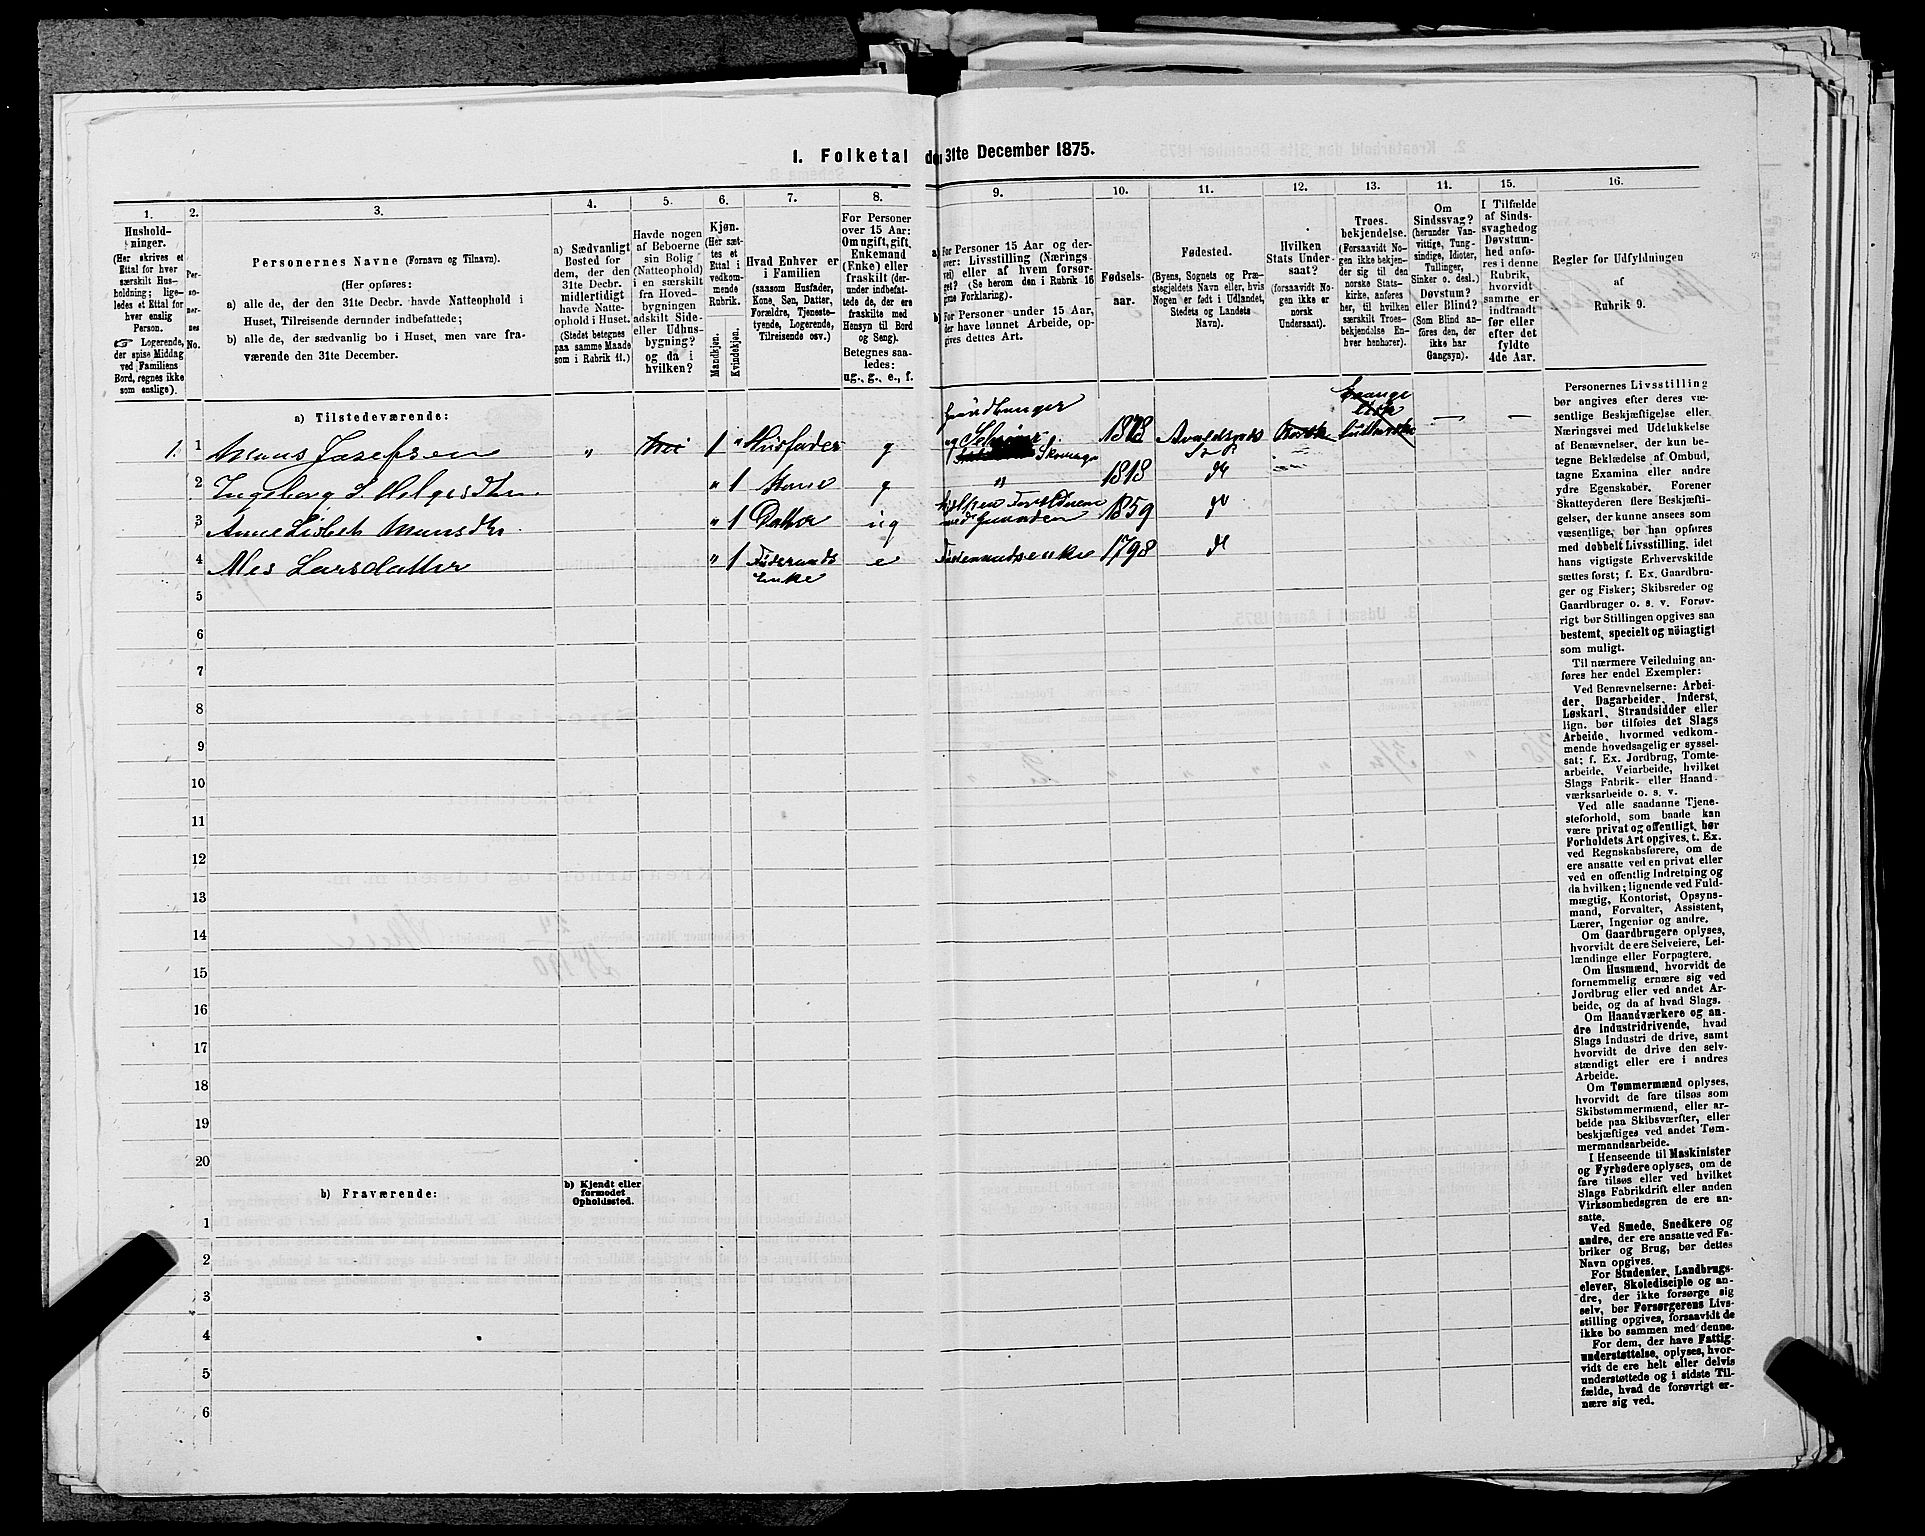 1. Folketal den 31te December 1875.
1.
2.
3.
4.
5.
6.
7.
8.
9.
10.
11.
12.
13.
14.
15.
16.
Hushold-
ninger.
(Her skrives et
Ettal for hver
særskilt Hus-
holdning; lige-
ledes et Ettal for
hver enslig
Person.
☞ Logerende,
der spise Middag
ved Familiens
Bord, regnes ikke
som enslige).
Per-
soner-
nes
No.
Personernes Navne (Fornavn og Tilnavn).
(Her opføres:
a) alle de, der den 31te Decbr. havde Natteophold i
Huset, Tilreisende derunder indbefattede;
b) alle de, der sædvanlig bo i Huset, men vare fra-
værende den 31te December.
a) Sædvanligt
Bosted for
dem, der den
31te Decbr.
midlertidigt
havde Natte-
ophold i Huset.
(Stedet betegnes
paa samme Maade
som i Rubrik 11.)
Havde nogen
af Beboerne
sin Bolig
(Natteophold)
i en særskilt
fra Hoved-
bygningen
adskilt Side-
eller Udhus-
bygning?
og da i
hvilken?
Kjøn.
(Her sæt-
tes et
Ettal i
vedkom-
mende
Rubrik.
Mandkjøn.
Kvindekjøn.
Hvad Enhver er
i Familien
(saasom Husfader,
Kone, Søn, Datter,
Forældre, Tjeneste-
tyende, Logerende,
Tilreisende osv.)
For Personer
over 15 Aar:
Om ugift, gift,
Enkemand
(Enke) eller
fraskilt (der-
under indbefat-
tede de, der ere
fraskilte med
Hensyn til Bord
og Seng).
Betegnes saa-
ledes:
ug., g., e., f.
a) For Personer 15 Aar og der-
over: Livsstilling (Nærings-
vei) eller af hvem forsør-
get? (Se herom den i Rubrik 16
givne Forklaring).
b) For Personer under 15 Aar,
der have lønnet Arbeide, op-
gives dettes Art.
Fødsels-
aar.
Fødested.
(Byens, Sognets og Præ-
stegjeldets Navn eller, hvis
Nogen er født i Udlandet,
Stedets og Landets
Navn).
Hvilken
Stats Under-
saat?
(forsaavidt No-
gen ikke er
norsk
Undersaat).
Troes-
bekjendelse.
(Forsaavidt No-
gen ikke bekjen-
der sig til den
norske Stats-
kirke, anføres
her, til hvilken
særskilt Troes-
bekjendelse En-
hver henhører).
Om
Sindssvag?
(herunder Van-
vittige, Tung-
sindige, Idioter,
Tullinger,
Sinker o. desl.)
Døvstum?
eller Blind?
(Som Blind an-
føres den, der
ikke har
Gangsyn).
I Tilfælde
af Sinds-
svaghed og
Døvstum-
hed anfø-
res i denne
Rubrik,
hvorvidt
samme er
indtraadt
før eller
efter det
fyldte
4de Aar.
Regler for Udfyldningen
af
Rubrik 9.
a) Tilstedeværende:
1 1 Mons Josefsen " 1 " Husfader g Gaardbruger og Selveier Skomager 1818 Avaldsnes S. P. Norsk Evangelisk luthersk — —
2 Ingeborg S. Helgesdtr. " 1 Kone g " 1818 do
3 Anne Lisbet Monsdtr " 1 Datter ug 1859 do
4 Larsdatter " 1 Føderaads Enke e Føderaadsenke 1798 do
5
6
7
8
9
10
11
12
13
14
15
16
17
18
19
20
b) Fraværende:
b) Kjendt eller
formodet
Opholdssted.
1
2
3
4
5
6
Personernes Livsstilling
bør angives efter deres væ-
sentlige Beskjæftigelse eller
Næringsvei med Udelukkelse
af Benævnelser, der kun be-
tegne Beklædelse af Ombud,
tagne Examina eller andre
ydre Egenskaber. Forener
Skatteyderen flere Beskjæfti-
gelser, der kunne ansees som
væsentlige, bør han opføres
med dobbelt Livsstilling, idet
hans vigtigste Erhvervskilde
sættes først; f. Ex. Gaardbru-
ger og Fisker; Skibsreder og
Gaardbruger o. s. v. Forøv-
rigt bør Stillingen opgives saa
bestemt, specielt og nöiagtigt
som muligt.
Til nærmere Veiledning an-
føres her endel Exempler:
Ved Benævnelserne: Arbei-
der, Dagarbeider, Inderst,
Løskarl, Strandsidder eller
lign. bør tilføies det Slags
Arbeide, hvormed vedkom-
mende hovedsagelig er syssel-
sat; f. Ex. Jordbrug, Tomte-
arbeide, Veiarbeide, hvilket
Slags Fabrik- eller Haand-
værksarbeide o. s. v.
Ved alle saadanne Tjene-
steforhold, som baade kan
være privat og offentligt, bør
Forholdets Art opgives, f. Ex.
ved Regnskabsførere, om de
ere ansatte ved en privat eller
ved en offentlig Indretning og
da hvilken; lignende ved Fuld-
mægtig, Kontorist, Opsyns-
mand, Forvalter, Assistent,
Lærer, Ingeniør og andre.
Om Gaardbrugere oplyses,
hvorvidt de ere Selveiere, Lei-
lændinge eller Forpagtere.
Om Husmænd, hvorvidt de
fornemmelig ernære sig ved
Jordbrug eller ved andet Ar-
beide, og da af hvad Slags.
Om Haandværkere og an-
dre Industridrivende, hvad
Slags Industri de drive, samt
hvorvidt de drive den selv-
stændigt eller ere i andres
Arbeide.
Om Tømmermænd oplyses,
hvorvidt de fare tilsøs som
Skibstømmermænd, eller ar-
beide paa Skibsværfter, eller
beskjæftiges ved andet Tøm-
mermandsarbeide.
I Henseende til Maskinister
og Fyrbødere oplyses, om de
fare tilsøs eller ved hvilket
Slags Fabrikdrift eller anden
Virksomhedsgren de ere an-
satte.
Ved Smede, Snedkere og
andre, der ere ansatte ved Fa-
briker og Brug, bør dettes
Navn opgives.
For Studenter, Landbrugs-
elever, Skoledisciple og an-
dre, der ikke forsørge sig
selv, bør Forsørgerens Livs-
stilling opgives, forsaavidt de
ikke bo sammen med denne.
For dem, der have Fattig-
understøttelse, oplyses, hvor-
vidt de ere helt eller delvis
understøttede og i sidste Til-
fælde, hvad de forøvrigt er-
nære sig ved.